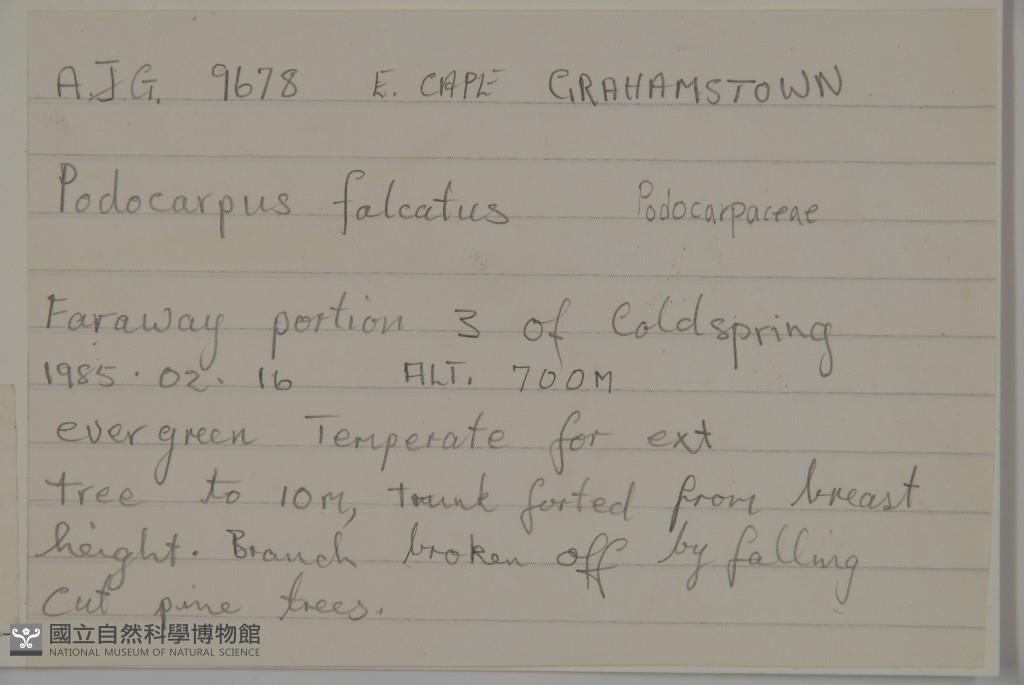 A.J.G. 9678 E. CAPE GRAHAMSTOWN
Podocarpus falcatus Podocarpaceae
Faraway portion 3 of Coldspring
1985.02.16 ALT. 700M
evergreen Temperate for ext
tree to 10M, trunk forted from breast
height. Branch broken off by falling
cut pine trees.
國立自然科學博物館
NATIONAL MUSEUM OF NATURAL SCIENCE